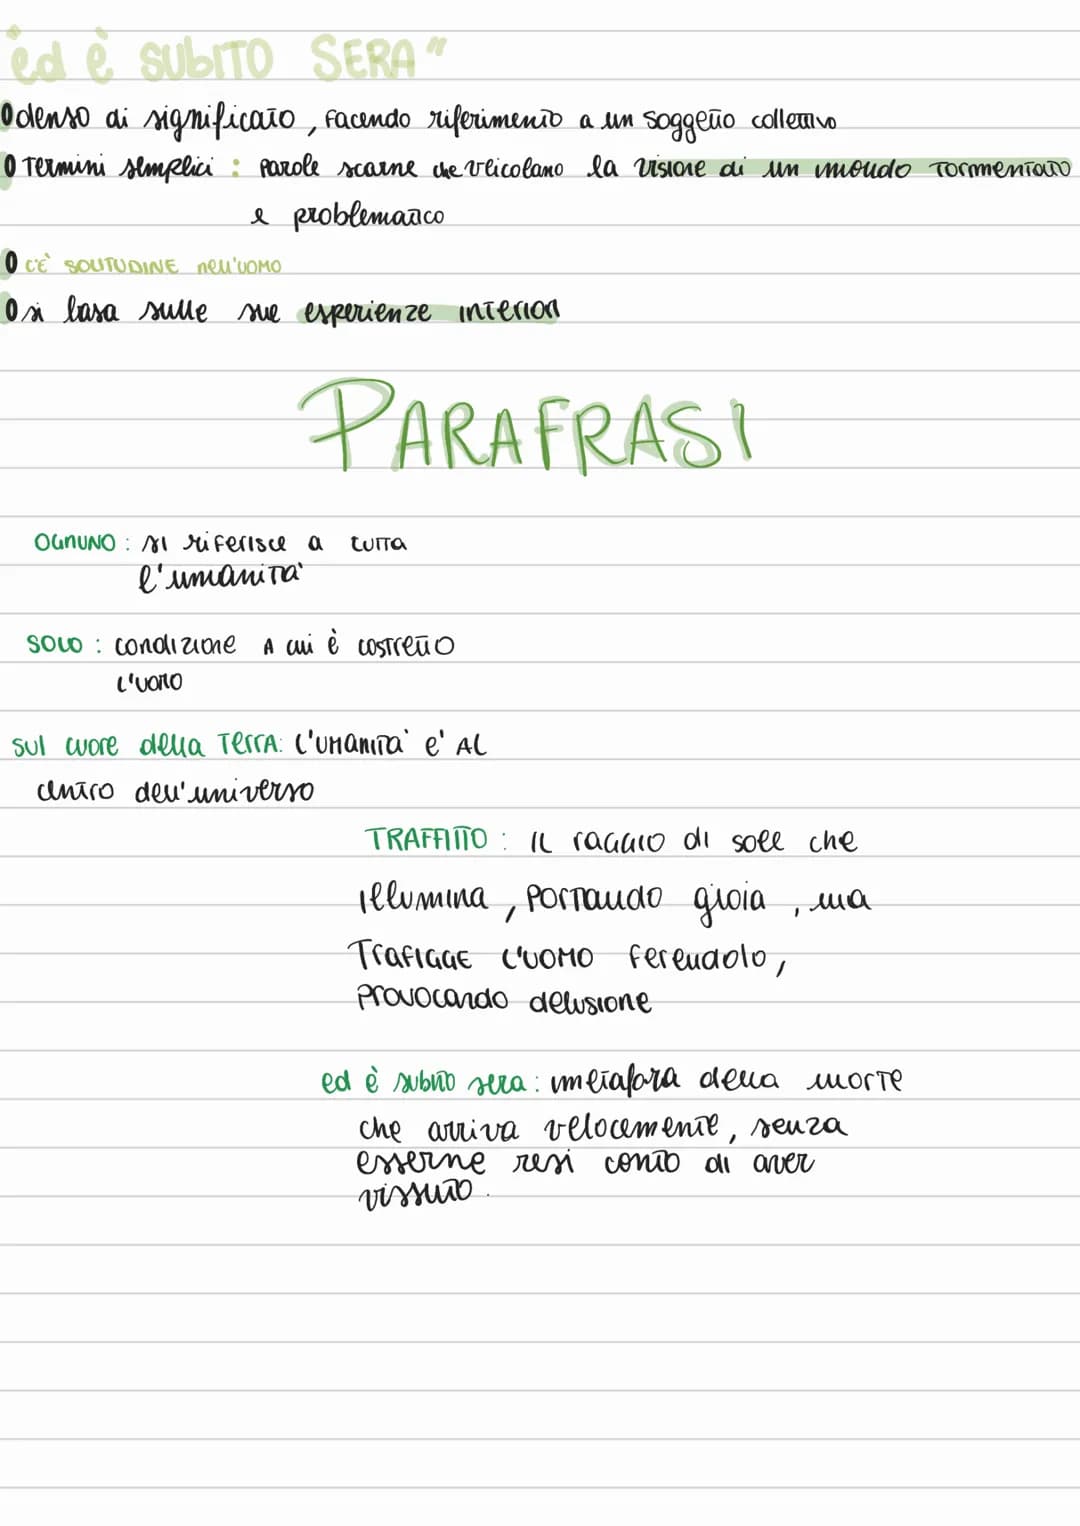 "ed è SUBITO SERA"
denso di significato, facendo riferimento a un soggetto collettivo
Termini semplici : parole scarne che veicolano la visione di un mondo tormentato
e problematico
C'È SOLITUDINE nell'UOMO
si basa sulle sue esperienze interiori
PARAFRASI
OGNUNO : si riferisce a tutta
l'umanità
SOLO : condizione A cui è costretto
l'uomo
sul cuore della Terra: l'umanità e' AL
centro dell'universo
TRAFITTO : IL raggio di sole che
illumina, portando gioia, ma
Trafigge l'uomo ferendolo,
provocando delusione
ed è subito sera : metafora della morte
che arriva velocemente, senza
esserne resi conto di aver
vissuto.